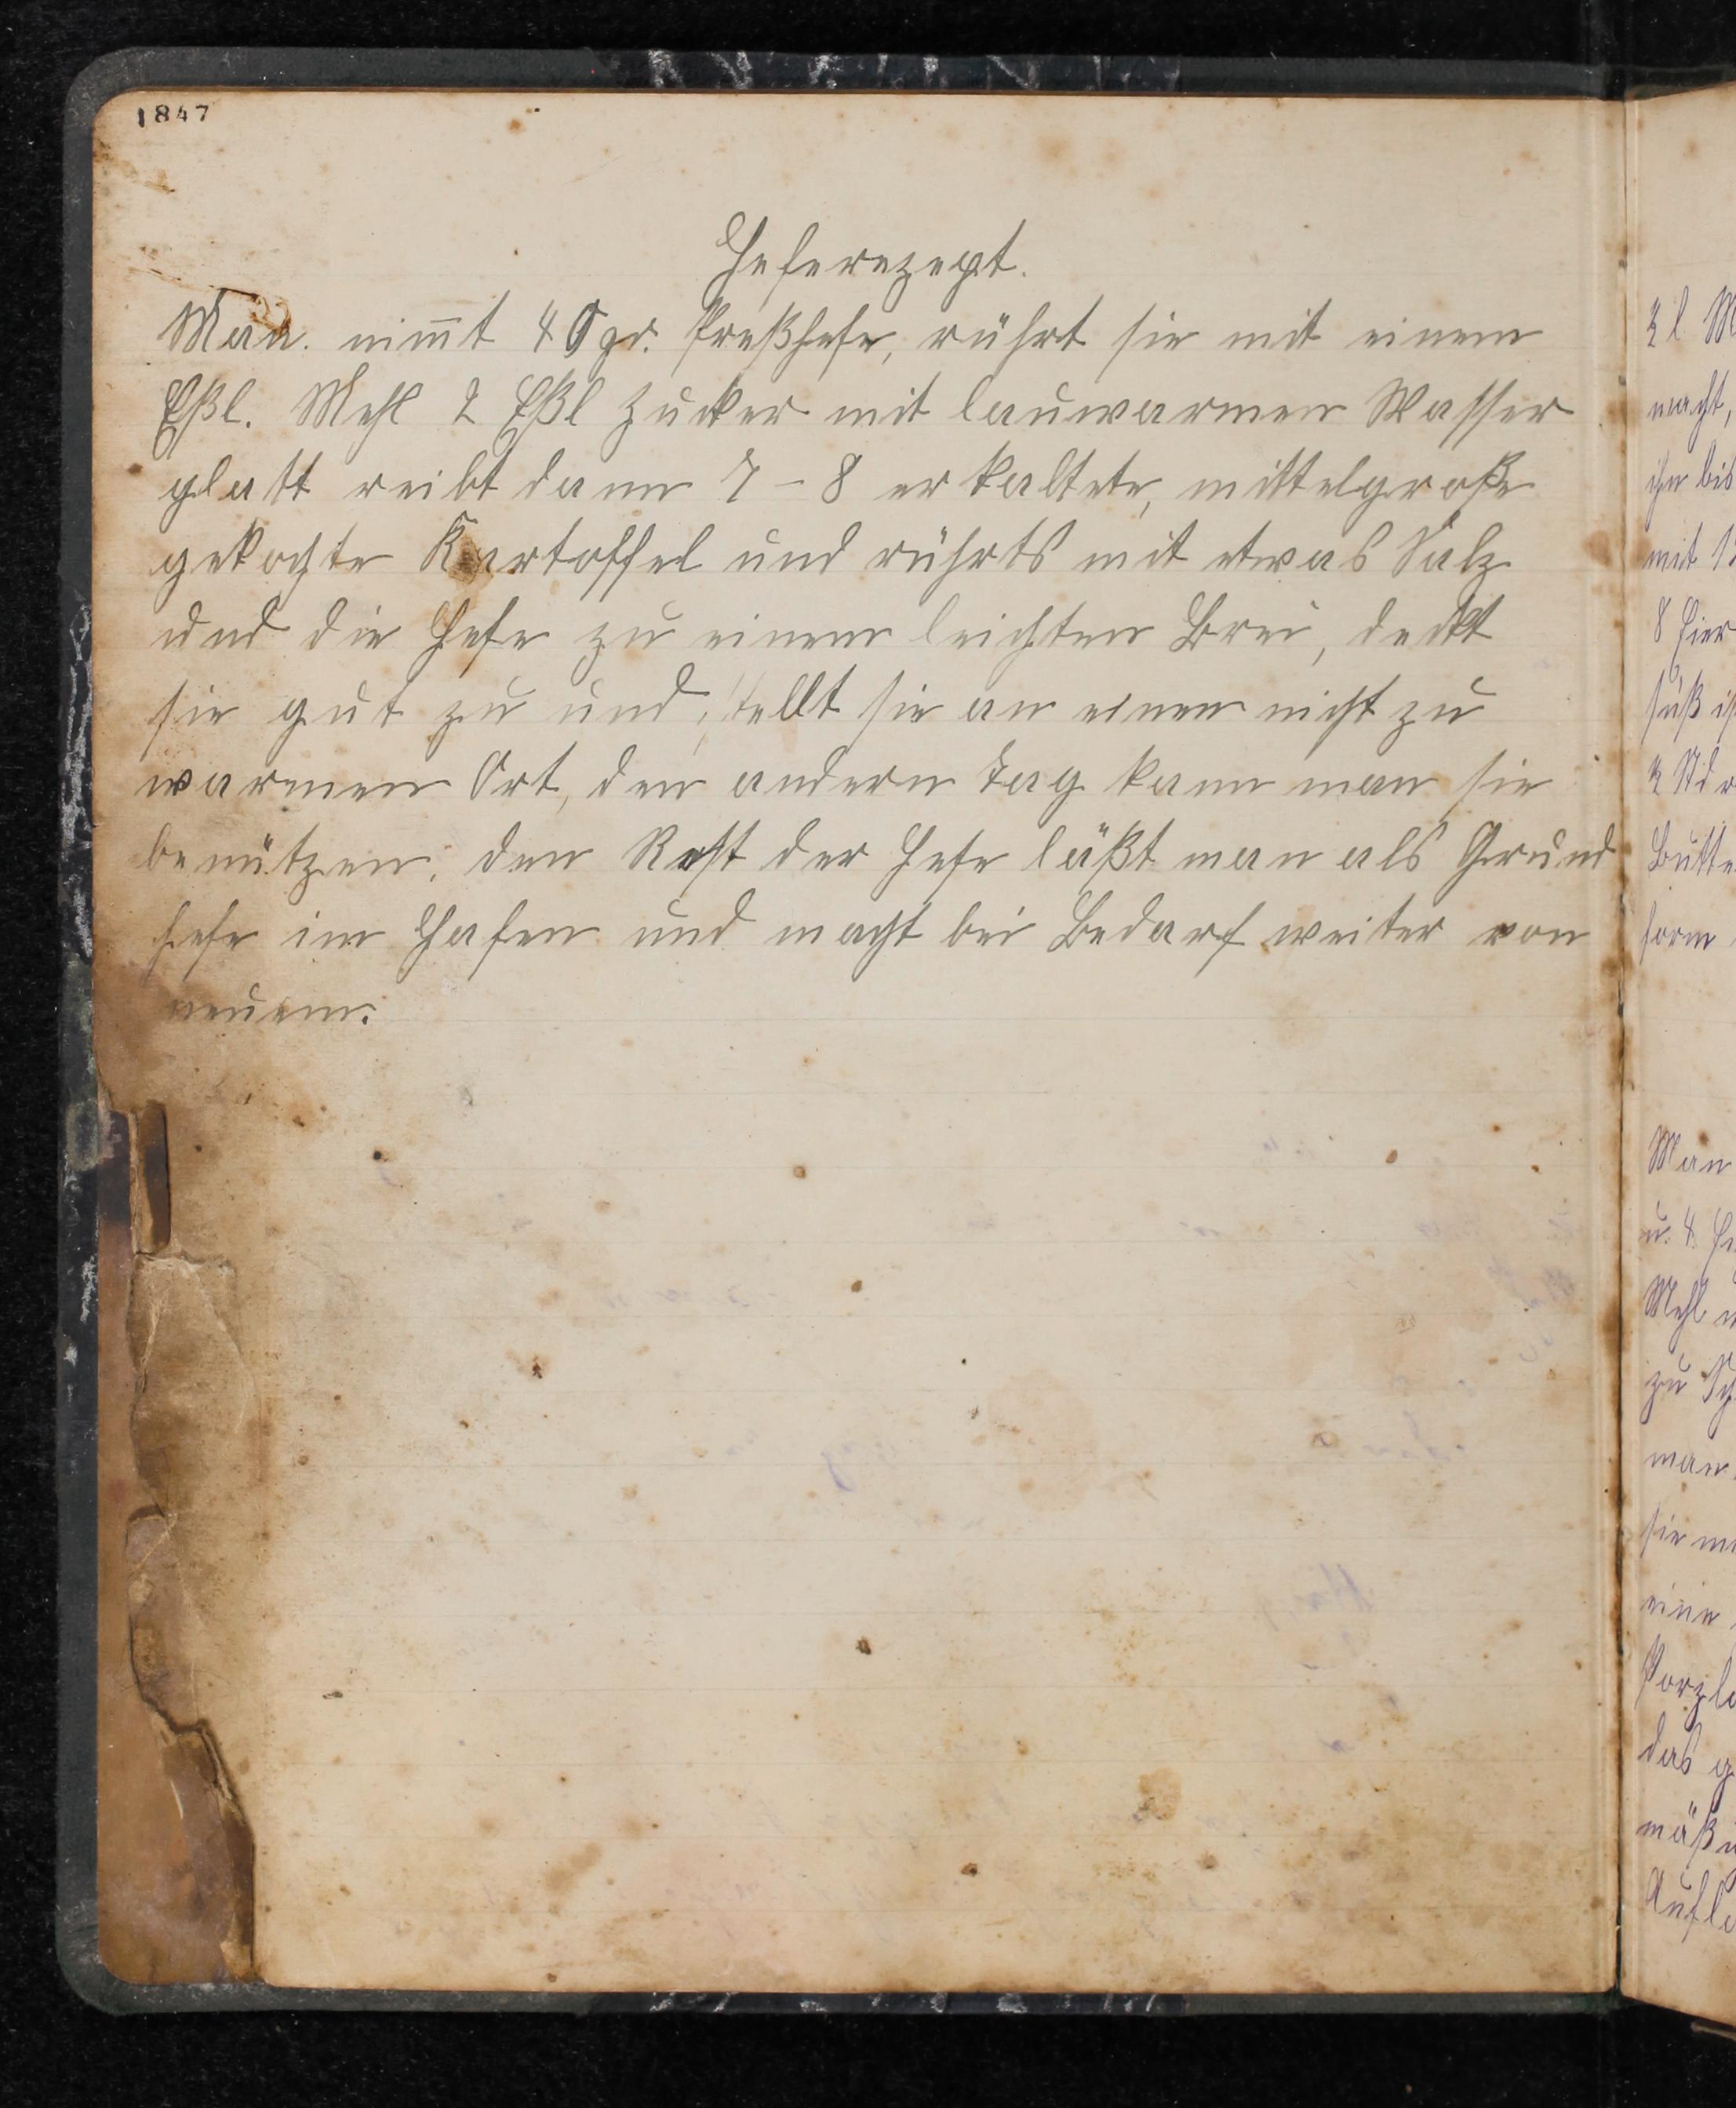 1847
Heferezept.
Man nim̄t 40 gr. Preßhefe, rührt sie mit einem
Eßl. Mehl 2 Eßl Zucker mit lauwarmen Wasser
glatt reibt dann 7 - 8 erkaltete, mittelgroße
gekochte Kartoffel und rührts mit etwas Salz
und die Hefe zu einem leichten Brei, deckt
sie gut zu und stellt sie an einen nicht zu
warmen Ort, den andern Tag kann man sie
benützen; den Rest der Hefe läßt man als Grund
hefe im Hafen und macht bei Bedarf weiter von
neuem.
2 l M
macht,
ihn bis
mit 1
8 Eier
süß is
2 Std
Butte
form
Man
u. 4
Mehl
zu
man
sie
eine
Porzla
das g
mäßi
Aufl